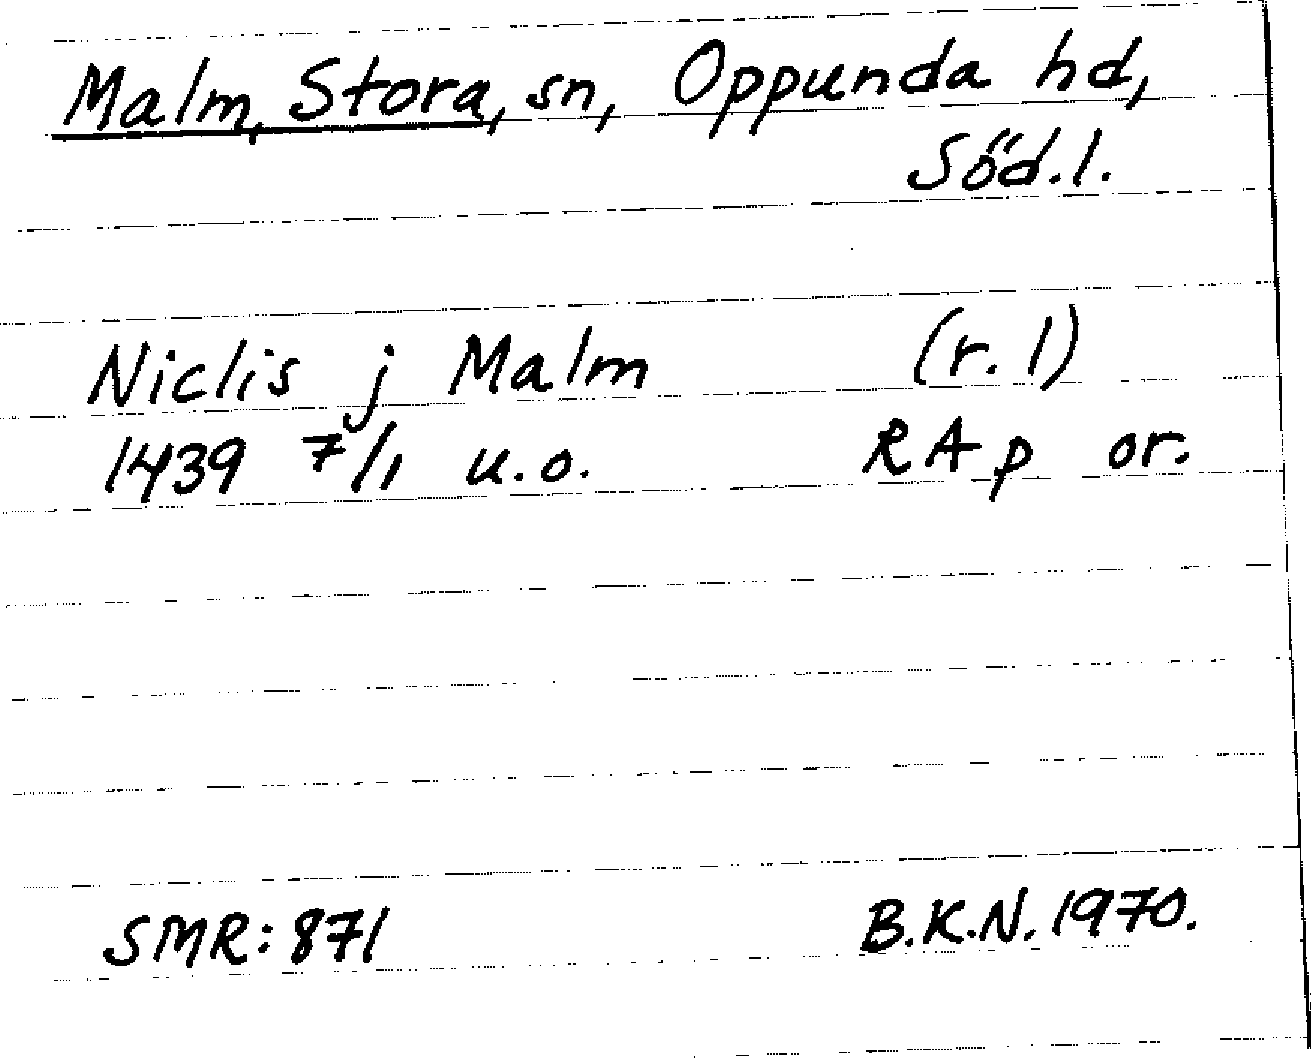 Malm, Stora, sn, Oppunda hd,
Söd.l.
Niclis j Malm (r. 1)
1439 7/1 u.o. RAp or.
SMR: 871 B.K.N. 1970.